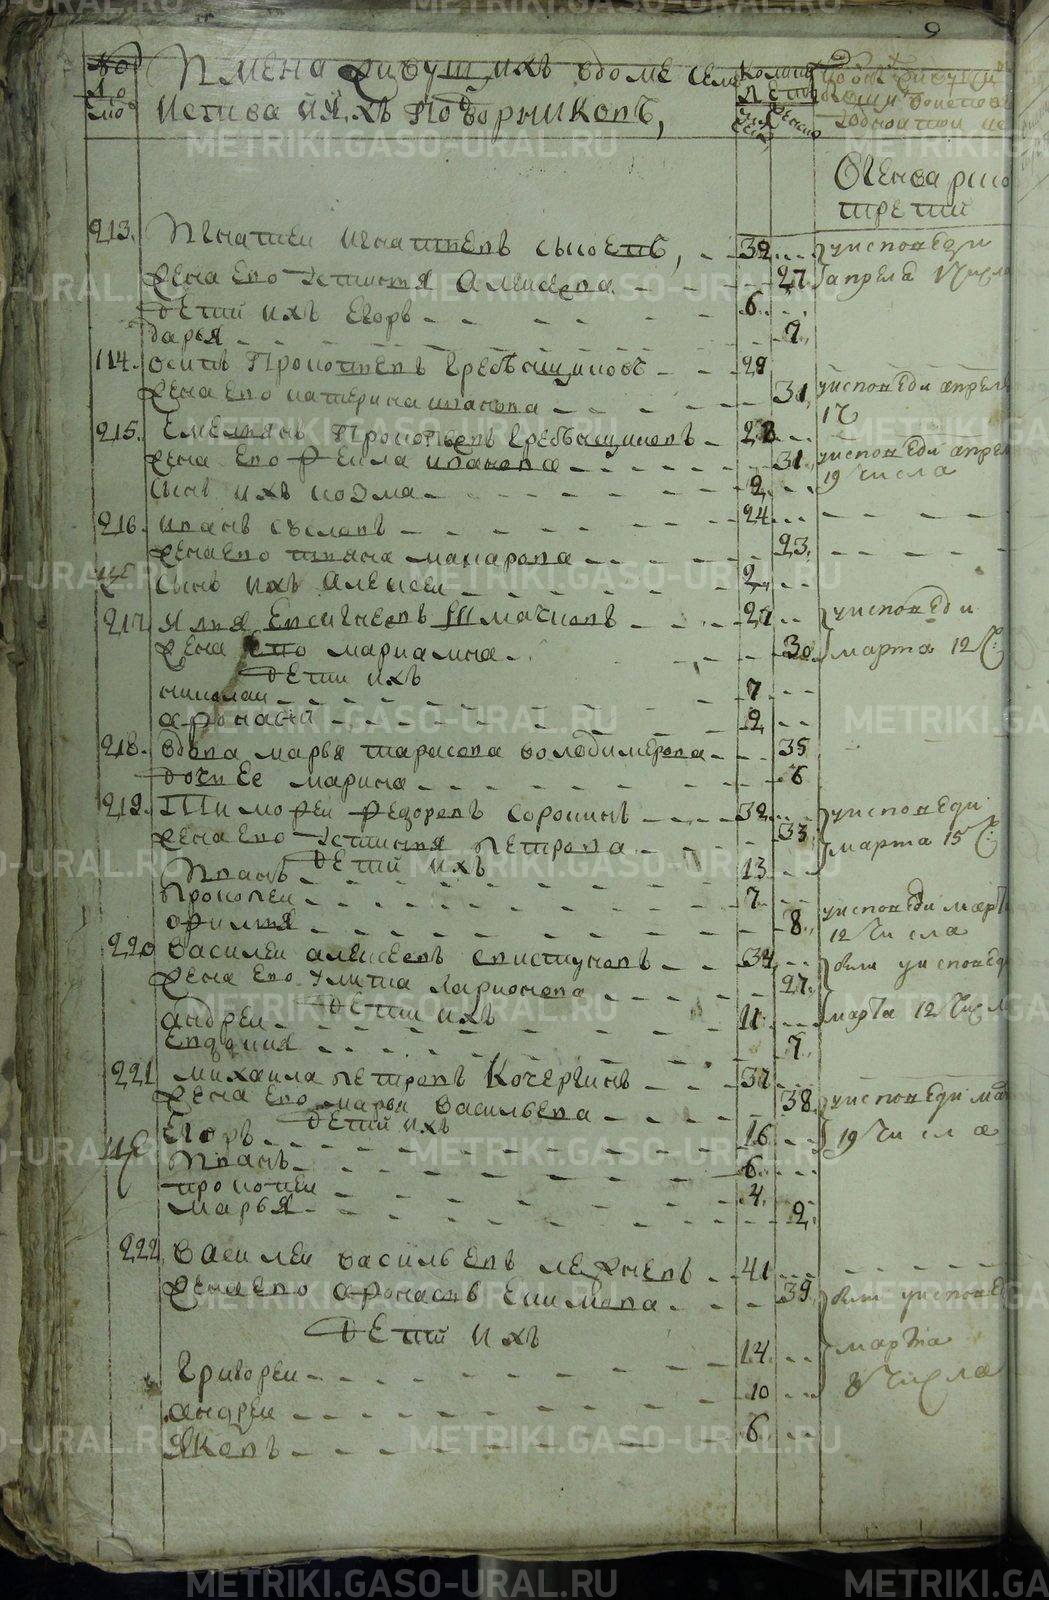 9
Имена живущихъ вдоме семе
истива ихъ подворниковъ,
Генваря
трети
213. Игнатеи игнатиевъ сысоевъ, 32
уисповеди
жена ево устиния Алексеева 27
апреля 17 числа
дети ихъ Егоръ 6
дарья 9
114. осипъ Прокопиевъ Гребенщиковъ 29
жена ево катерина иванова 31
уисповеди апреля
17
215. Емельянъ Прокопьевъ Гребенщиковъ 28
жена ево Фекла иванова 31
уисповеди апрел
19 числа
сынъ ихъ козма 2
216. иванъ сусловъ 24
жена ево татяна макарова 23
сынъ ихъ Алексеи 2
217. Илья Евсигнеевъ Шмаковъ 27
уисповеди
жена ево мариамна 30
марта 12 ч:
дети ихъ
николаи 7
афонасеи 2
218. вдова марья тарасова володимерова 35
дочь ее марина 6
219. Тимофеи Федоровъ сорокинъ 32
уисповеди
жена ево устиния Петрова 33
марта 15 ч:
дети ихъ
Иванъ 13
Прокопеи 7
афимия 8
уисповеди март
12 числа
220 василеи алексеевъ свистуновъ 34
были уисповед
жена ево улита ларионова 27
марта 12 числ
дети ихъ
андреи 11
Евдокия 7
221 михаила петровъ Кочергинъ 37
жена ево марья васильева 38
уисповеди ма
дети ихъ
Егоръ 16
19 числа
Иванъ 6
прокопеи 4
марья 2
222 василеи васильевъ лежневъ 41
жена ево афонасья Екимова 39
были уисповед
дети ихъ
марта
Григореи 14
8 числа
андреи 10
Яковъ 6
METRIKI.GASO-URAL.RU